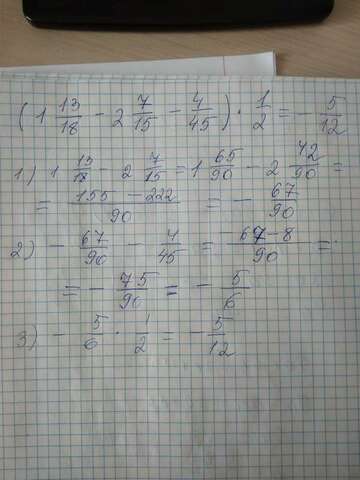 (1 13/18 - 2 7/15 - 4/45) · 1/2 = - 5/12
1) 1 13/18 - 2 7/15 = 1 65/90 - 2 42/90 =
= 155 - 222/90 = - 67/90
2) - 67/90 - 4/45 = 67 - 8/90 =
= - 75/90 = - 5/6
3) - 5/6 · 1/2 = - 5/12